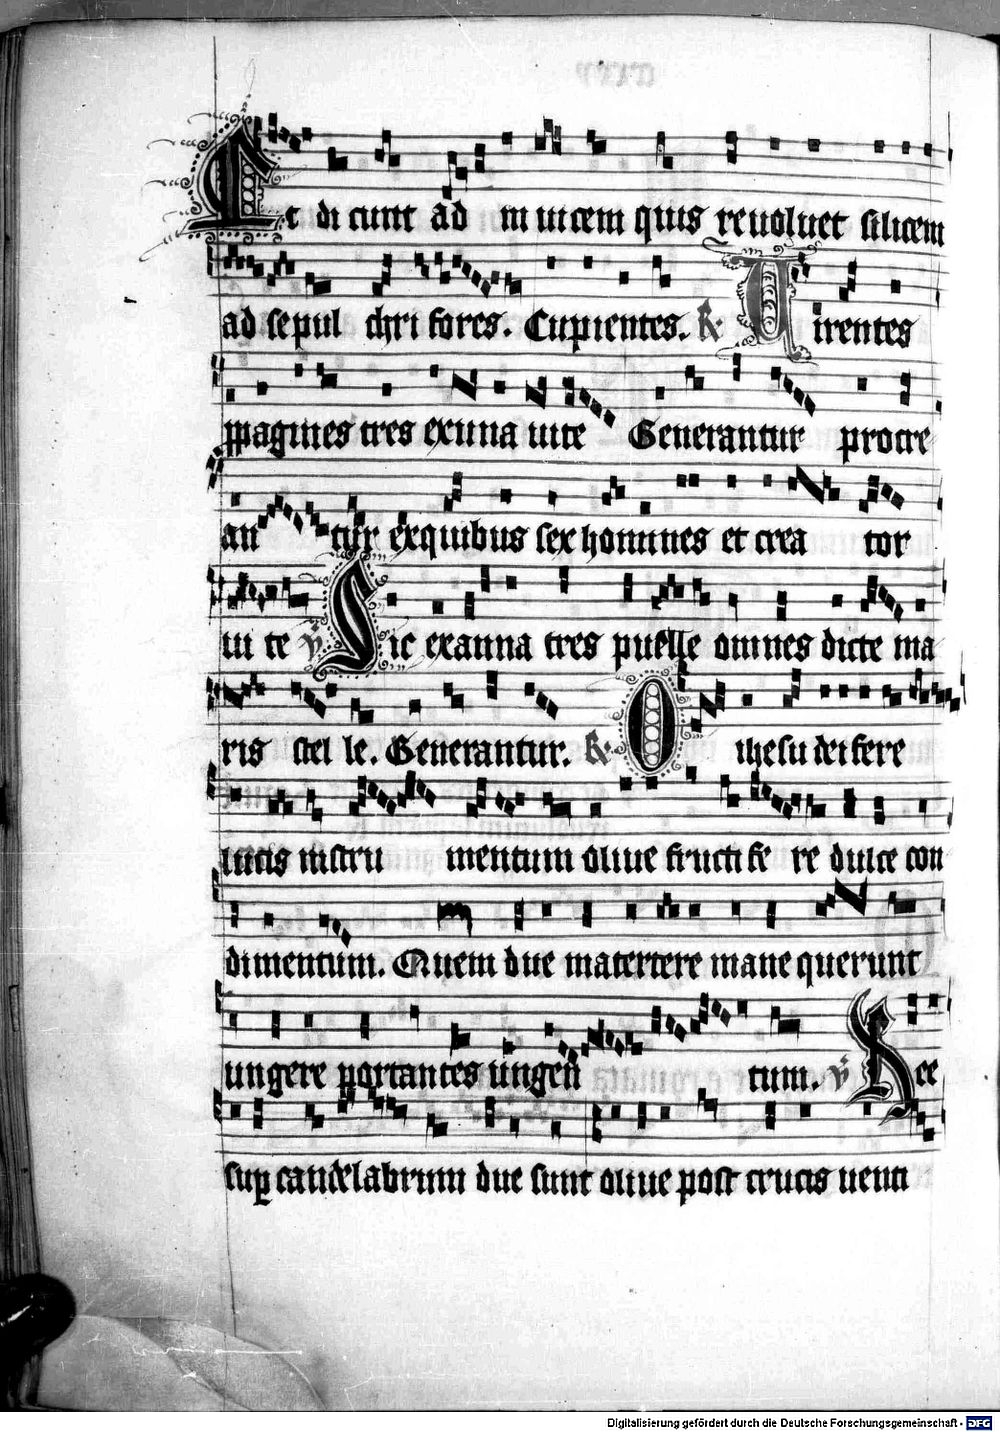 Et di cunt ad in uicem quis reuoluet silicem
ad sepul chri fores. Cupientes. R Uirentes
ppagines tres ex una uite Generantur procre
an tur exquibus sex homines et crea tor
ui te V Sic exanna tres puelle omnes dicte ma
ris stel le. Generantur. R O ihesu dei fere
lucis nistru mentum oliue fructi fe re dulce con
dimentum. Quem due matertere mane querunt
ungere portantes ungen tum. V Hee
sup candelabrum due sunt oliue post crucis uenti
Digitalisierung gefördert durch die Deutsche Forschungsgemeinschaft - DFG